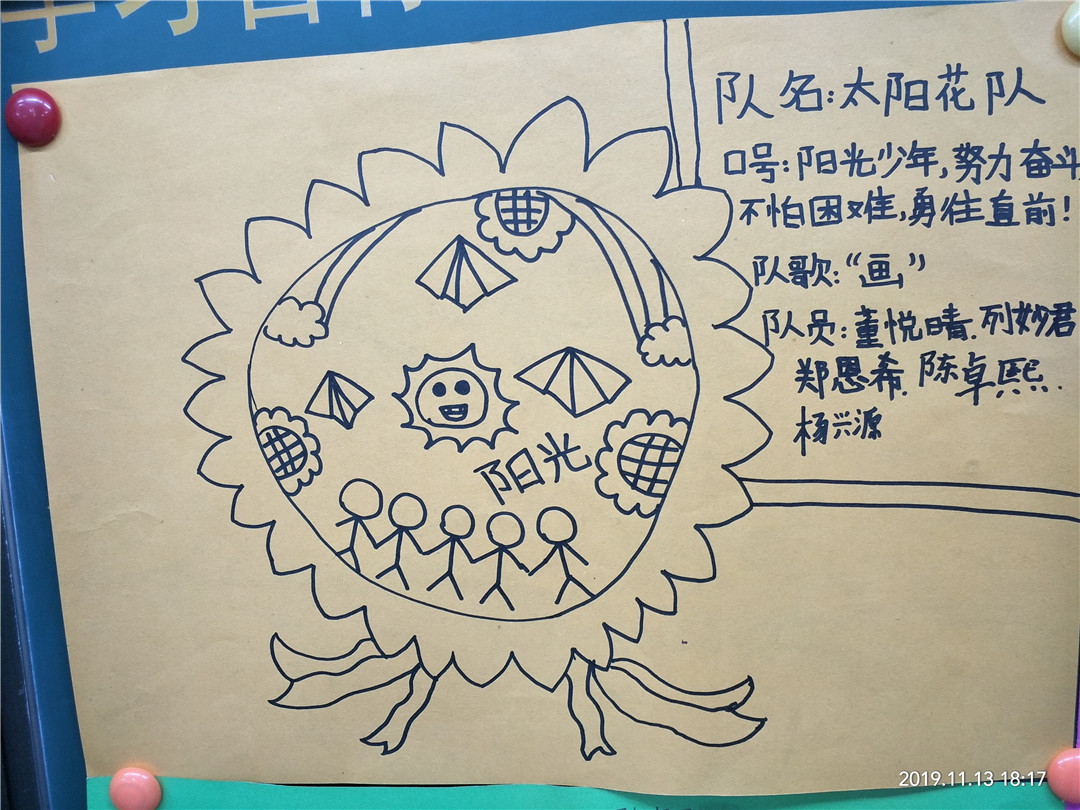 学习目标
队名:太阳花队
口号:阳光少年,努力奋斗
不怕困难,勇往直前!
队歌:“画”
队员:董悦晴.列妙君
郑恩希.陈卓熙.
杨兴源
阳光
2019.11.13 18:17